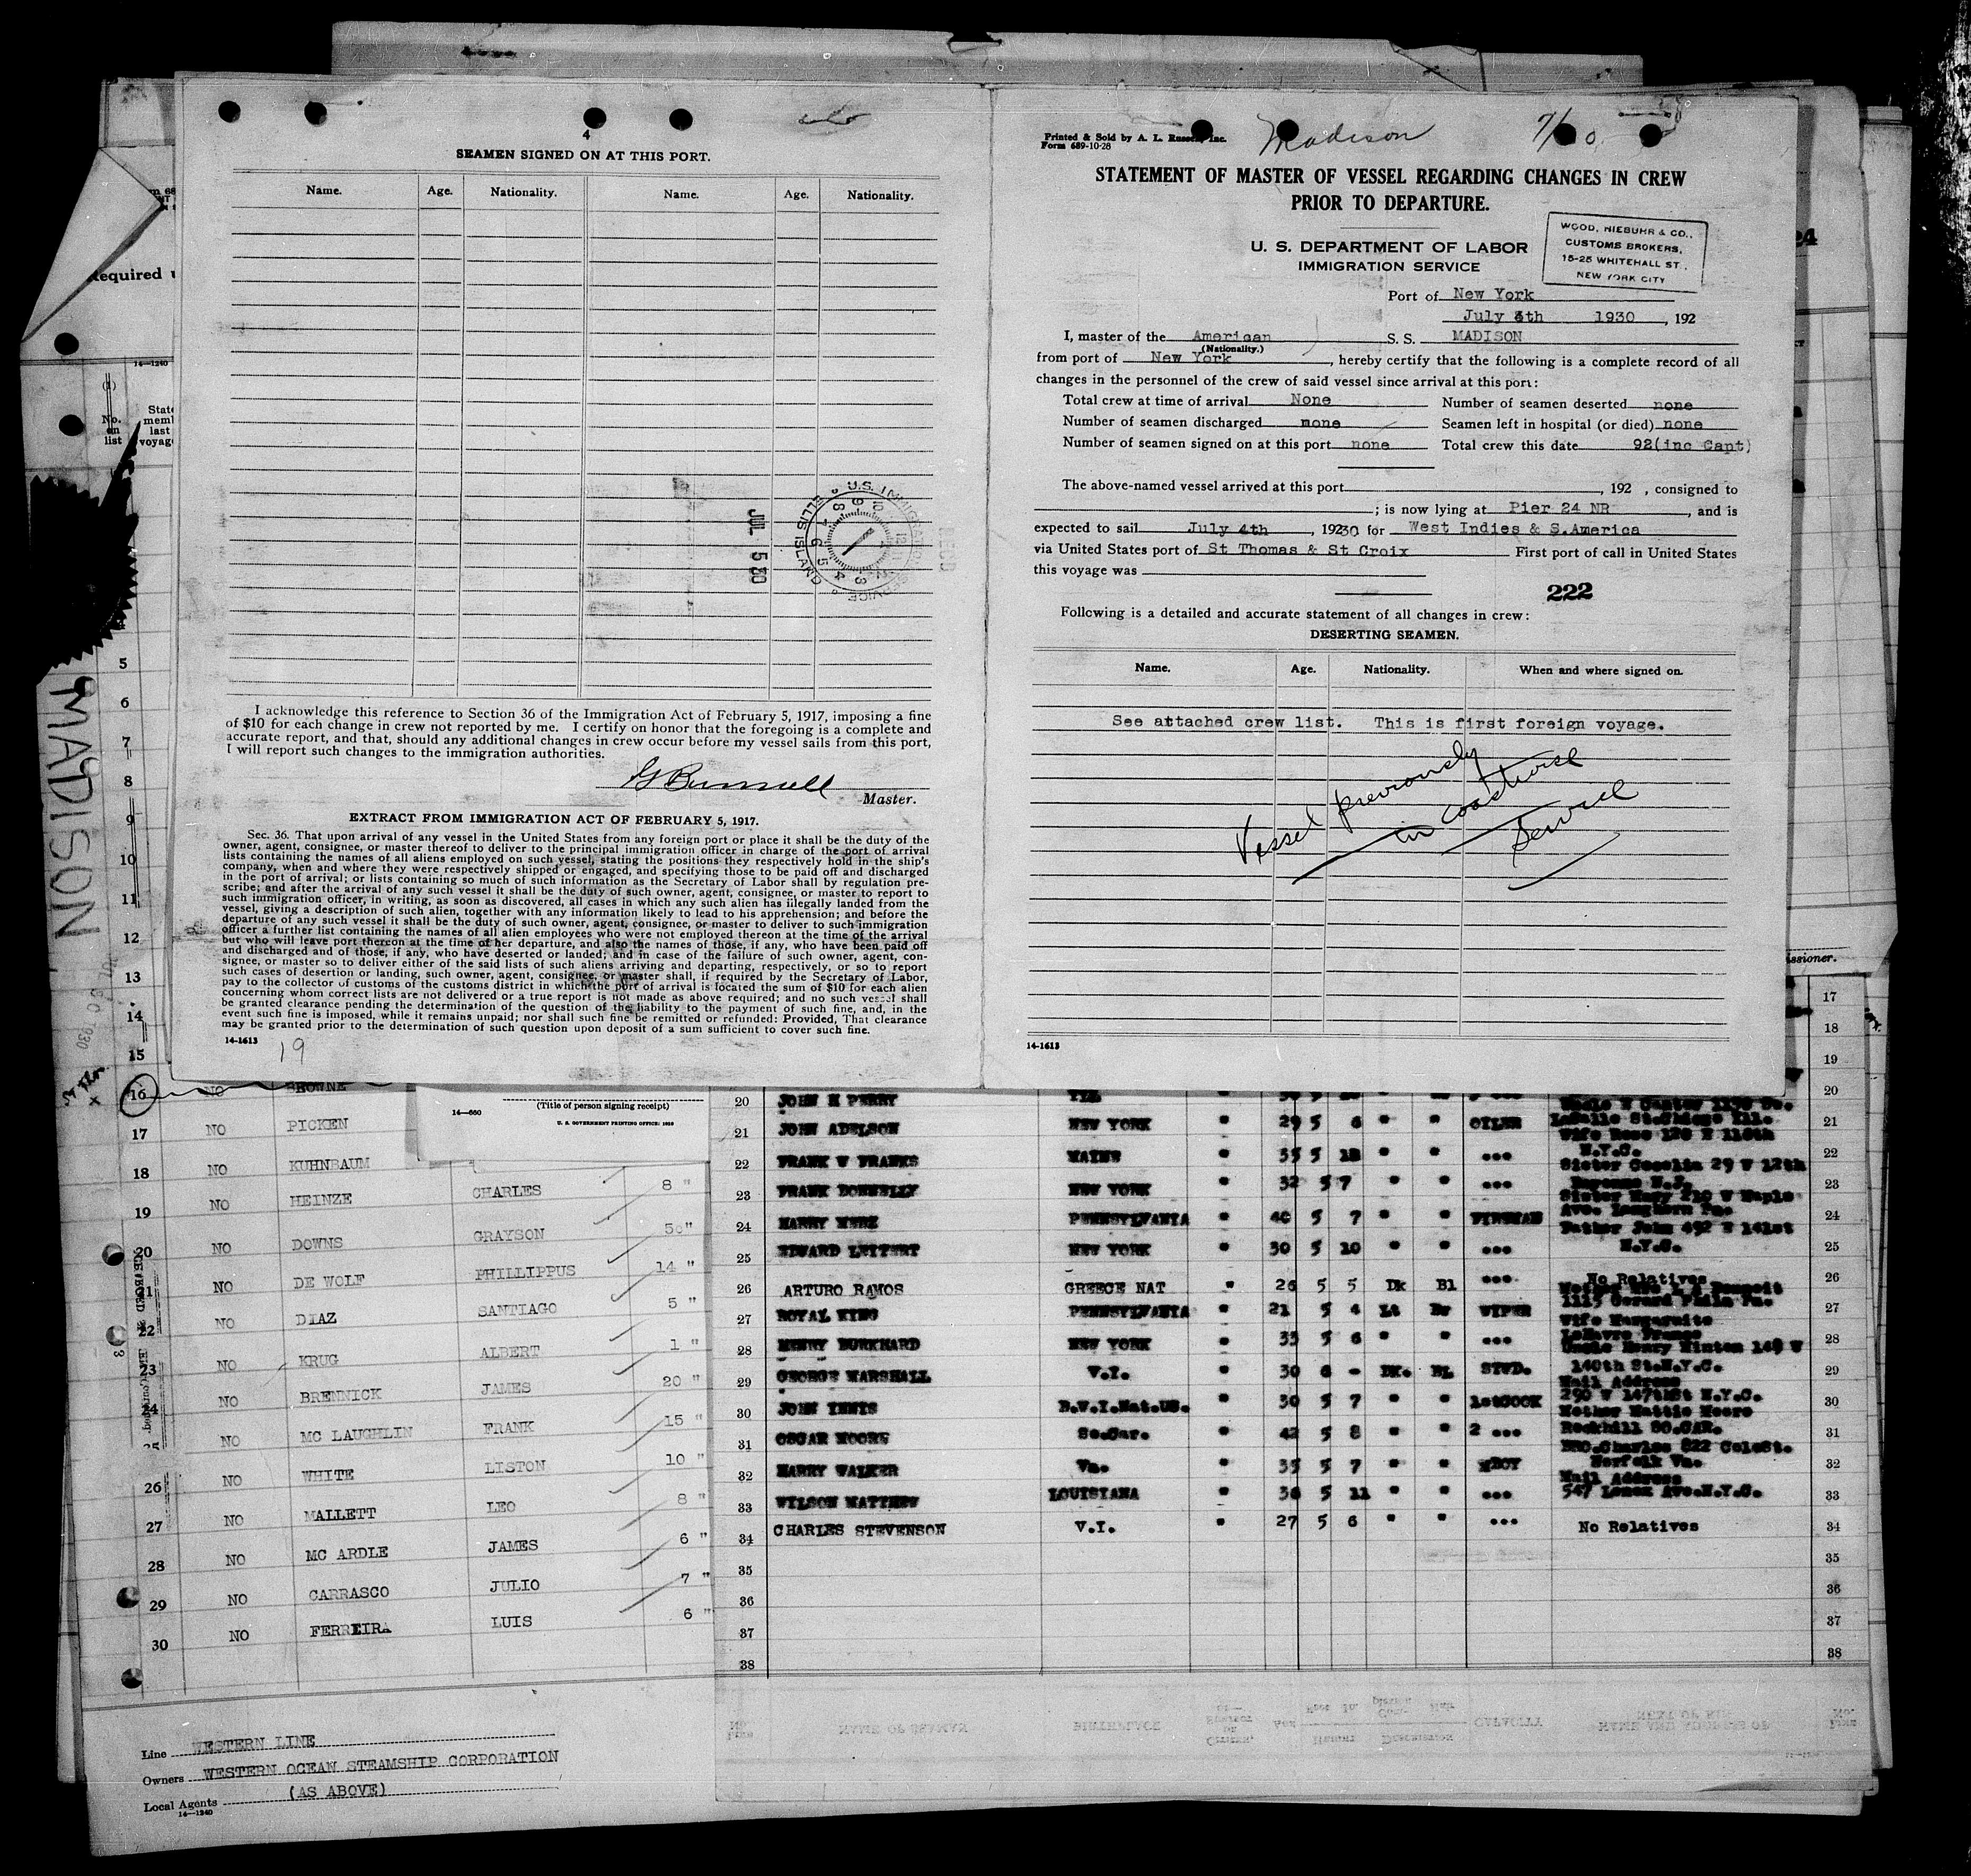 4
SEAMEN SIGNED ON AT THIS PORT.
Name. Age. Nationality. Name. Age. Nationality.
U.S. IMMIGRATION SERVICE
ELLIS ISLAND
JUL 5 30
I acknowledge this reference to Section 36 of the Immigration Act of February 5, 1917, imposing a fine
of $10 for each change in crew not reported by me. I certify on honor that the foregoing is a complete and
accurate report, and that, should any additional changes in crew occur before my vessel sails from this port,
I will report such changes to the immigration authorities.
Master.
EXTRACT FROM IMMIGRATION ACT OF FEBRUARY 5, 1917.
Sec. 36. That upon arrival of any vessel in the United States from any foreign port or place it shall be the duty of the
owner, agent, consignee, or master thereof to deliver to the principal immigration officer in charge of the port of arrival
lists containing the names of all aliens employed on such vessel, stating the positions they respectively hold in the ship's
company, when and where they were respectively shipped or engaged, and specifying those to be paid off and discharged
in the port of arrival; or lists containing so much of such information as the Secretary of Labor shall by regulation pre-
scribe; and after the arrival of any such vessel it shall be the duty of such owner, agent, consignee, or master to report to
such immigration officer, in writing, as soon as discovered, all cases in which any such alien has illegally landed from the
vessel, giving a description of such alien, together with any information likely to lead to his apprehension; and before the
departure of any such vessel it shall be the duty of such owner, agent, consignee, or master to deliver to such immigration
officer a further list containing the names of all alien employees who were not employed thereon at the time of the arrival
but who will leave port thereon at the time of her departure, and also the names of those, if any, who have been paid off
and discharged and of those, if any, who have deserted or landed; and in case of the failure of such owner, agent, con-
signee, or master so to deliver either of the said lists of such aliens arriving and departing, respectively, or so to report
such cases of desertion or landing, such owner, agent, consignee, or master shall, if required by the Secretary of Labor,
pay to the collector of customs of the customs district in which the port of arrival is located the sum of $10 for each alien
concerning whom correct lists are not delivered or a true report is not made as above required; and no such vessel shall
be granted clearance pending the determination of the question of the liability to the payment of such fine, and, in the
event such fine is imposed, while it remains unpaid; nor shall such fine be remitted or refunded: Provided, That clearance
may be granted prior to the determination of such question upon deposit of a sum sufficient to cover such fine.
14-1613
19
Printed & Sold by A. L. Russell, Inc.
Form 689-10-28
Madison
STATEMENT OF MASTER OF VESSEL REGARDING CHANGES IN CREW
PRIOR TO DEPARTURE.
U. S. DEPARTMENT OF LABOR
IMMIGRATION SERVICE
WOOD, NIEBUHR & CO.,
CUSTOMS BROKERS,
15-25 WHITEHALL ST.,
NEW YORK CITY
Port of New York
July 4th 1930, 192
I, master of the American S. S. MADISON
(Nationality.)
from port of New York, hereby certify that the following is a complete record of all
changes in the personnel of the crew of said vessel since arrival at this port:
Total crew at time of arrival None Number of seamen deserted none
Number of seamen discharged none Seamen left in hospital (or died) none
Number of seamen signed on at this port none Total crew this date 92(inc Capt)
The above-named vessel arrived at this port, 192 , consigned to
; is now lying at Pier 24 NR, and is
expected to sail July 4th, 19230 for West Indies & S.America
via United States port of St Thomas & St Croix First port of call in United States
this voyage was
222
Following is a detailed and accurate statement of all changes in crew:
DESERTING SEAMEN.
Name. Age. Nationality. When and where signed on.
See attached crew list. This is first foreign voyage.
Vessel previously
in coastwise
Service
14-1613
Required
14-1240
(1)
No. on list
MADISON
5
6
7
8
9
10
11
12
13
14
15
16 NO BROWNE
17 NO PICKEN
18 NO KUHNBAUM
19 NO HEINZE CHARLES 8 "
20 NO DOWNS GRAYSON 50"
21 NO DE WOLF PHILLIPPUS 14 "
22 NO DIAZ SANTIAGO 5 "
23 NO KRUG ALBERT 1 "
24 NO BRENNICK JAMES 20 "
25 NO MC LAUGHLIN FRANK 15 "
26 NO WHITE LISTON 10 "
27 NO MALLETT LEO 8 "
28 NO MC ARDLE JAMES 6 "
29 NO CARRASCO JULIO 7 "
30 NO FERREIRA LUIS 6 "
Line WESTERN LINE
Owners WESTERN OCEAN STEAMSHIP CORPORATION
Local Agents (AS ABOVE)
14-1240
14-660
(Title of person signing receipt)
U. S. GOVERNMENT PRINTING OFFICE:
17
18
19
20 JOHN H PERRY 20
21 JOHN ADELSON NEW YORK " 29 5 6 " " OILER 21
22 FRANK W FRANKS MAINE " 35 5 " " ... N.Y.C. 22
23 FRANK DONNELLY NEW YORK " 32 5 7 " " ... 23
24 HARRY PENNSYLVANIA " 40 5 7 " " FIREMAN 24
25 EDWARD NEW YORK " 30 5 10 " " ... N.Y.C. 25
26 ARTURO RAMOS GREECE NAT " 26 5 5 Dk Bl ... No Relatives 26
27 ROYAL KING PENNSYLVANIA " 21 5 4 Lt Br WIPER 27
28 HENRY BURKHARD NEW YORK " 35 5 6 " " ... 28
29 GEORGE MARSHALL V.I. " 30 6 - DK. BL STWD. 140th St.N.Y.C. 29
30 JOHN B.V.I.Nat.US. " 30 5 7 " " 1stCOOK 290 W 147thSt N.Y.C. 30
31 OSCAR MOORE So.Car. " 42 5 8 " " 2 ... Rockhill SO.CAR. 31
32 HARRY WALKER Va. " 35 5 7 " " Norfolk Va. 32
33 WILSON MATTHEW LOUISIANA " 36 5 11 " " ... 547 Lenox Ave.N.Y.C. 33
34 CHARLES STEVENSON V.I. " 27 5 6 " " ... No Relatives 34
35 35
36 36
37 37
38 38